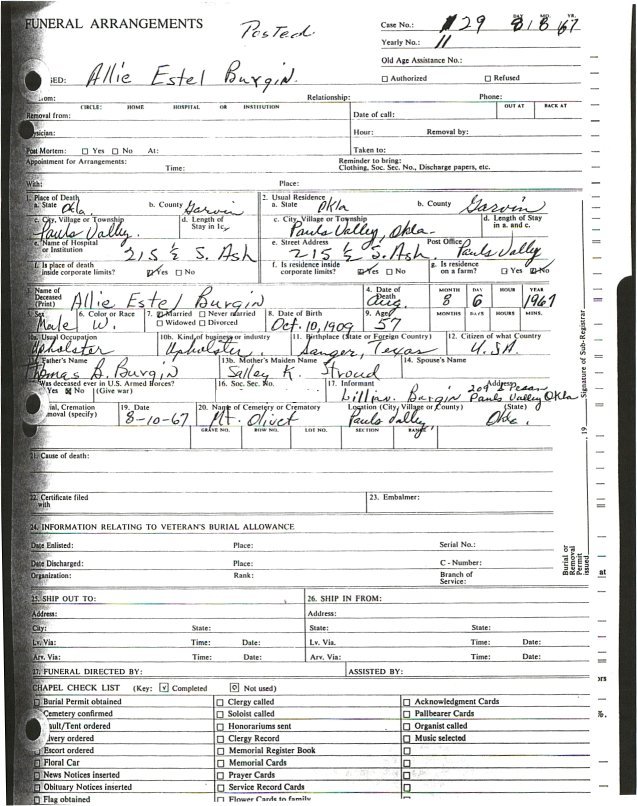 FUNERAL ARRANGEMENTS Posted Case No.: 29 8 8 67
DAY MO. YR.
Yearly No.: 11
Old Age Assistance No.:
SED: Allie Estel Burgin. ☐ Authorized ☐ Refused
From: Relationship: Phone:
CIRCLE: HOME HOSPITAL OR INSTITUTION OUT AT BACK AT
Removal from: Date of call:
Physician: Hour: Removal by:
Post Mortem: ☐ Yes ☐ No At: Taken to:
Appointment for Arrangements: Time: Reminder to bring:
Clothing, Soc. Sec. No., Discharge papers, etc.
With: Place:
1. Place of Death 2. Usual Residence
a. State Okla. b. County Garvin a. State Okla b. County Garvin
c. City, Village or Township Pauls Valley. d. Length of Stay in 1c. c. City, Village or Township Pauls Valley, Okla. d. Length of Stay in a. and c.
e. Name of Hospital or Institution 215 ½ S. Ash e. Street Address 215 ½ S. Ash. Post Office Pauls Valley
f. Is place of death inside corporate limits? ☑ Yes ☐ No f. Is residence inside corporate limits? ☑ Yes ☐ No g. Is residence on a farm? ☐ Yes ☑ No
3. Name of Deceased (Print) Allie Estel Burgin 4. Date of Death Aug. MONTH 8 DAY 6 HOUR YEAR 1967
5. Sex Male 6. Color or Race W. 7. ☑ Married ☐ Never married ☐ Widowed ☐ Divorced 8. Date of Birth Oct. 10, 1909 9. Age 57 MONTHS DAYS HOURS MINS.
10a. Usual Occupation Upholster 10b. Kind of business or industry Upholster 11. Birthplace (State or Foreign Country) Sanger, Texas 12. Citizen of what Country U.S.A.
13a. Father's Name Thomas B. Burgin 13b. Mother's Maiden Name Salley K. Stroud 14. Spouse's Name
15. Was deceased ever in U.S. Armed Forces? Yes ☒ No (Give war) 16. Soc. Sec. No. 17. Informant Lillian Burgin Address Pauls Valley Okla
Burial, Cremation Removal (specify) 19. Date 8-10-67 20. Name of Cemetery or Crematory Mt. Olivet Location (City, Village or County) Pauls Valley, (State) Okla.
GRAVE NO. ROW NO. LOT NO. SECTION RANGE
21. Cause of death:
22. Certificate filed with 23. Embalmer:
24. INFORMATION RELATING TO VETERAN'S BURIAL ALLOWANCE
Date Enlisted: Place: Serial No.:
Date Discharged: Place: C - Number:
Organization: Rank: Branch of Service:
25. SHIP OUT TO: 26. SHIP IN FROM:
Address: Address:
City: State: State: State:
Lv. Via: Time: Date: Lv. Via. Time: Date:
Arv. Via: Time: Date: Arv. Via: Time: Date:
27. FUNERAL DIRECTED BY: ASSISTED BY:
CHAPEL CHECK LIST (Key: ☑ Completed Not used)
☐ Burial Permit obtained ☐ Clergy called ☐ Acknowledgment Cards
Cemetery confirmed ☐ Soloist called ☐ Pallbearer Cards
Vault/Tent ordered ☐ Honorariums sent ☐ Organist called
Livery ordered ☐ Clergy Record ☐ Music selected
☐ Escort ordered ☐ Memorial Register Book ☐
☐ Floral Car ☐ Memorial Cards ☐
☐ News Notices inserted ☐ Prayer Cards ☐
☐ Obituary Notices inserted ☐ Service Record Cards ☐
☐ Flag obtained ☐ Flower Cards to family
Signature of Sub-Registrar
, 19
Burial or Removal Permit issued
at